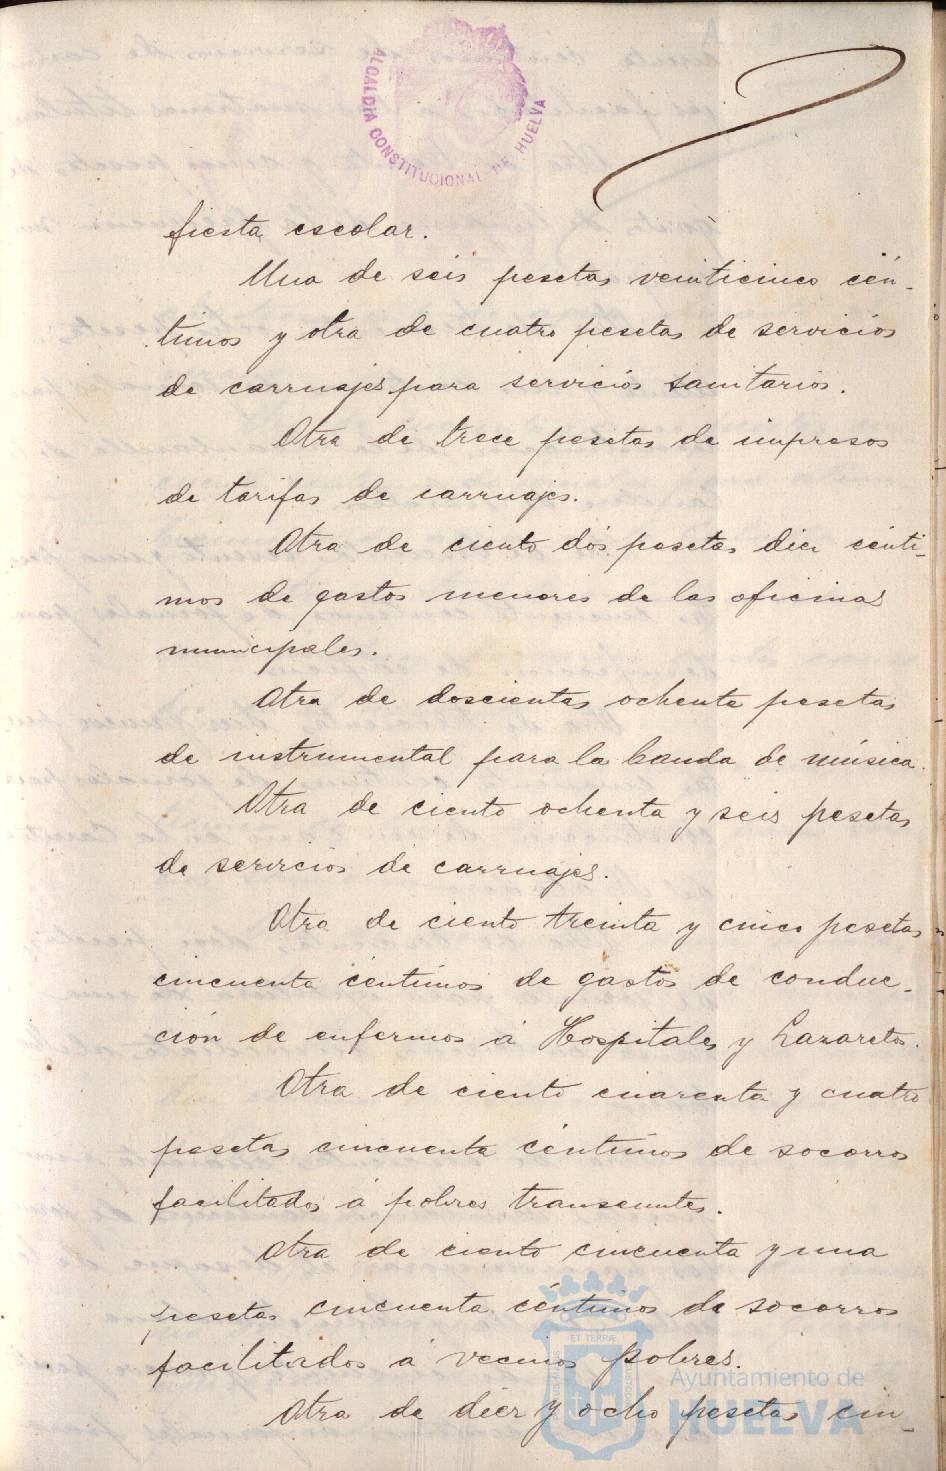 ALCALDÍA CONSTITUCIONAL DE HUELVA
fiesta escolar.
Una de seis pesetas veinticinco cén-
timos y otra de cuatro pesetas de servicios
de carruajes para servicios sanitarios.
Otra de trece pesetas de impresos
de tarifas de carruajes.
Otra de ciento dós pesetas diez cénti-
mos de gastos menores de las oficinas
municipales.
Otra de doscientas ochenta pesetas
de instrumental para la banda de música.
Otra de ciento ochenta y seis pesetas
de servicios de carruajes.
Otra de ciento treinta y cinco pesetas
cincuenta céntimos de gastos de conduc-
ción de enfermos á Hospitales y Lazaretos.
Otra de ciento cuarenta y cuatro
pesetas cincuenta céntimos de socorros
facilitados á pobres transeuntes.
Otra de ciento cincuenta y una
pesetas cincuenta céntimos de socorros
facilitados á vecinos pobres.
Otra de diez y ocho pesetas cin-
ET TERRÆ
Ayuntamiento de
HUELVA